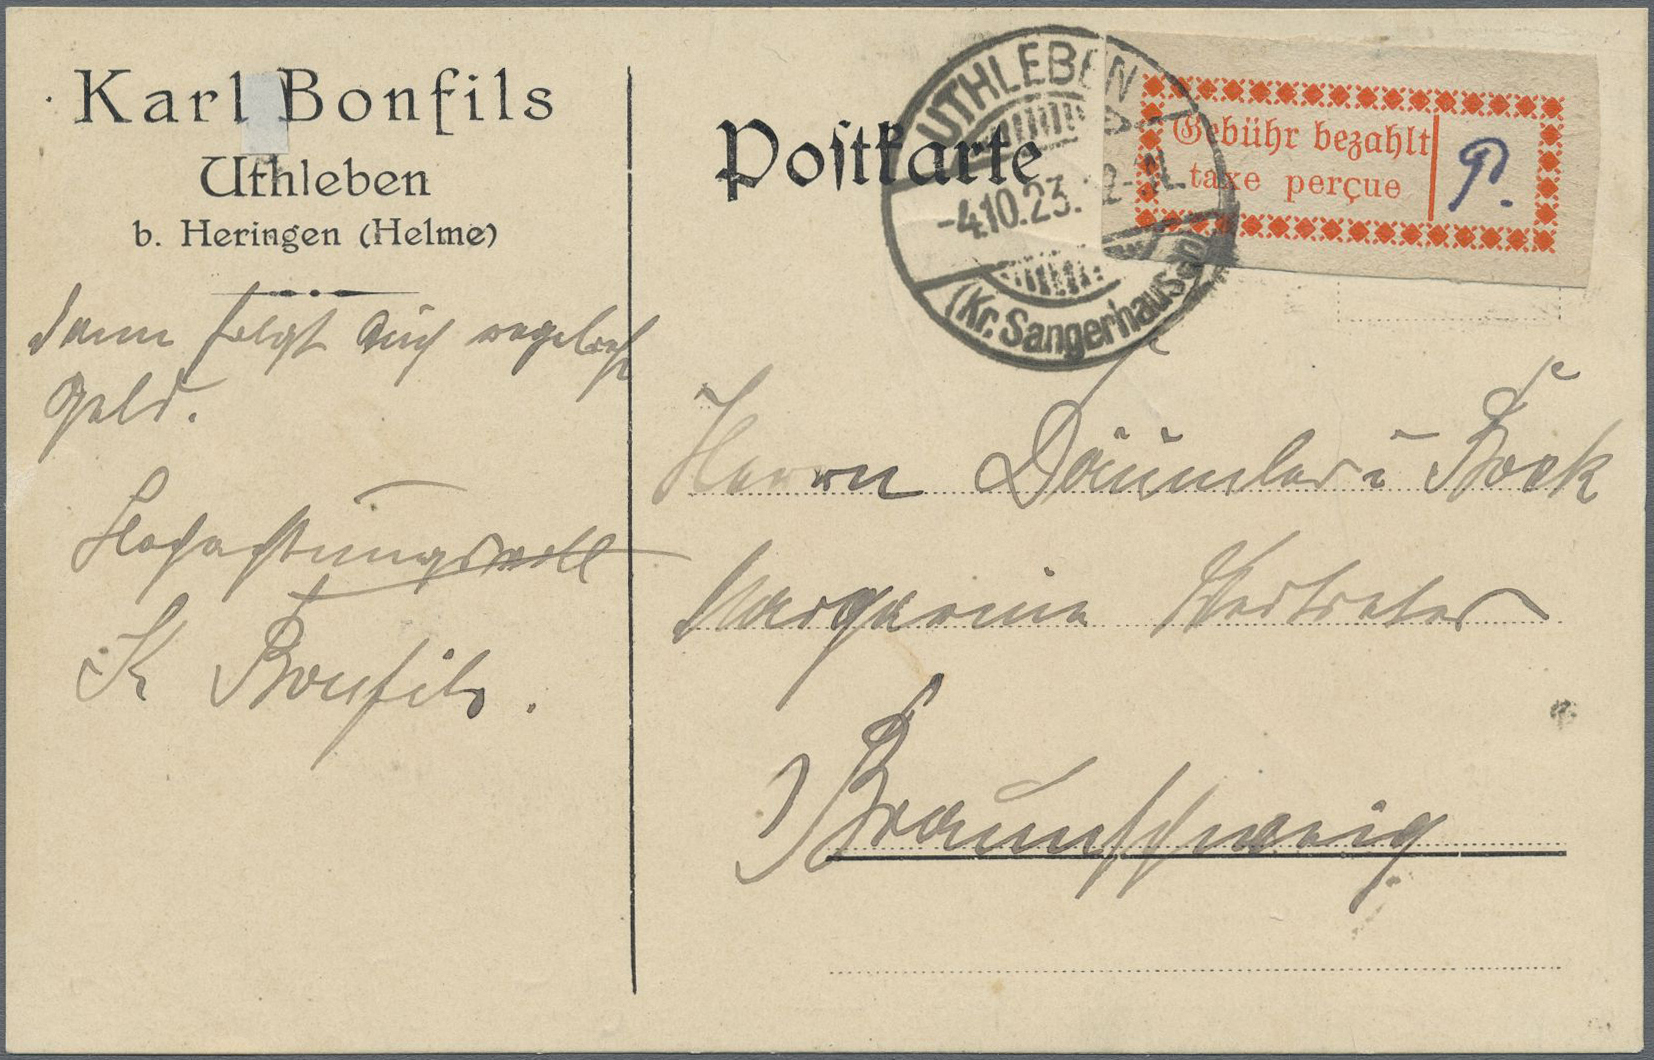 Karl Bonfils
Uthleben
b. Heringen (Helme)
dann folgt auch
Geld.
Hochachtungsvoll
K Bonfils.
Postkarte
UTHLEBEN
-4.10.23.
(Kr. Sangerhausen)
Gebühr bezahlt
taxe perçue
Herrn Däumler u Bock
Margarine Vertreter
Braunschweig